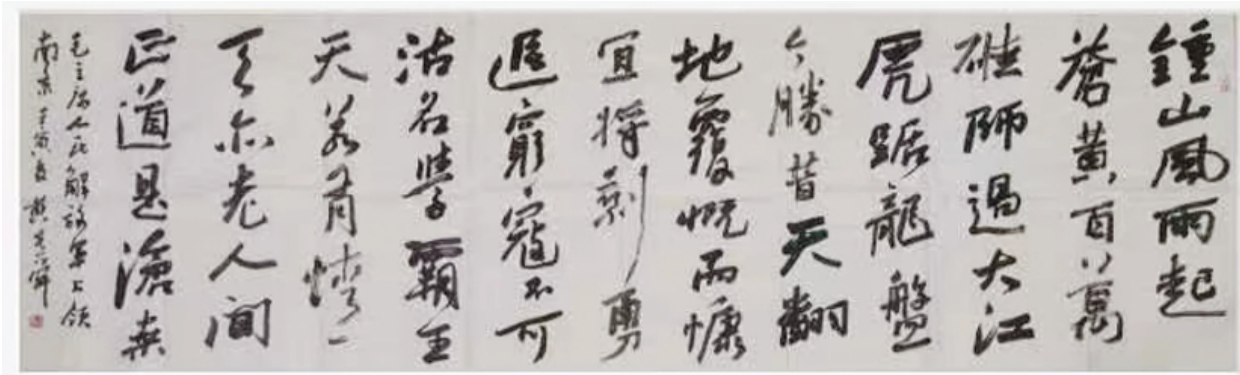 鍾山風雨起
蒼黃百萬
雄師過大江
虎踞龍盤
今勝昔天翻
地覆慨而慷
宜將剩勇
追窮寇不可
沽名學霸王
天若有情
天亦老人間
正道是滄桑
毛主席人民解放軍占領
南京